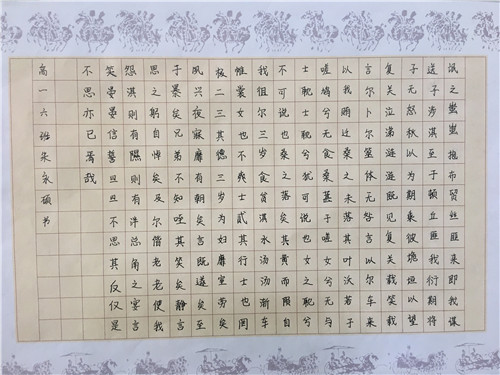 氓之蚩蚩抱布贸丝匪来即我谋
送子涉淇至于顿丘匪我衍期将
子无怒秋以为期乘彼垝垣以望
复关泣涕涟涟既见复关载笑载
言尔卜尔筮体无咎言以尔车来
以我贿迁桑之未落其叶沃若于
嗟鸠兮无食桑葚于嗟女兮无与
士耽士之耽犹可说也女之耽兮
不可说也桑之落矣其黄而陨自
我徂尔三岁食贫淇水汤汤渐车
帷裳女也不爽士贰其行士也罔
极二三其德三岁为妇靡室劳矣
夙兴夜寐靡有朝矣言既遂矣至
于暴矣兄弟不知咥其笑矣静言
思之躬自悼矣及尔偕老老使我
怨淇则有岸隰则有泮总角之宴
笑晏晏信誓旦旦不思其反仅是
不思亦已焉哉
高一六班朱永硕书